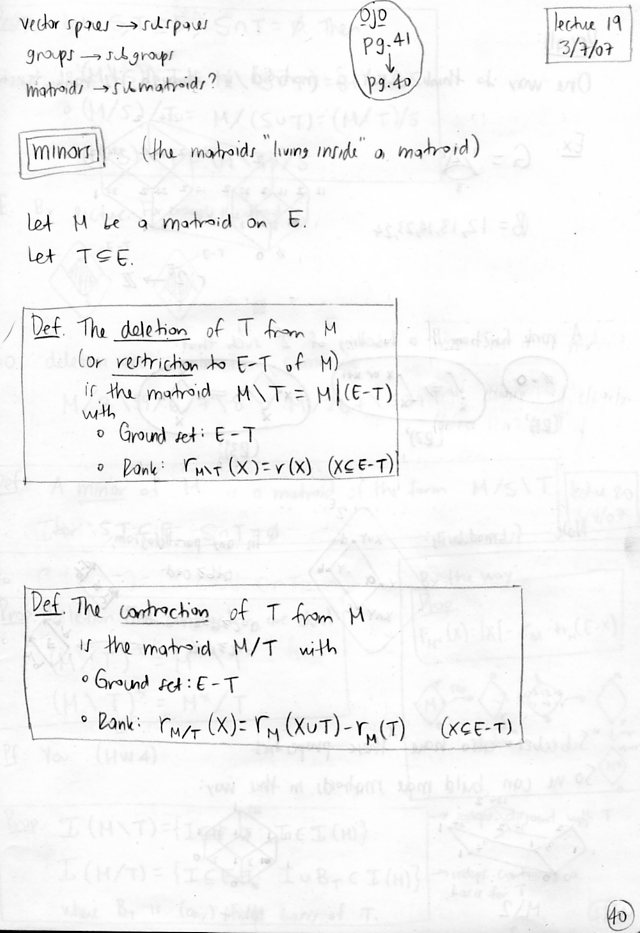 vector spaces → subspaces
groups → subgroups
matroids → submatroids?
OJO
pg. 41
↓
pg. 40
lecture 19
3/7/07
minors (the matroids "living inside" a matroid)
Let M be a matroid on E.
Let T ⊆ E.
Def. The deletion of T from M
(or restriction to E-T of M)
is the matroid M\T = M|(E-T)
with
• Ground set: E-T
• Rank: r_{M\T}(X) = r(X) (X⊆E-T)
Def. The contraction of T from M
is the matroid M/T with
• Ground set: E-T
• Rank: r_{M/T}(X) = r_M(X∪T) - r_M(T) (X⊆E-T)
40